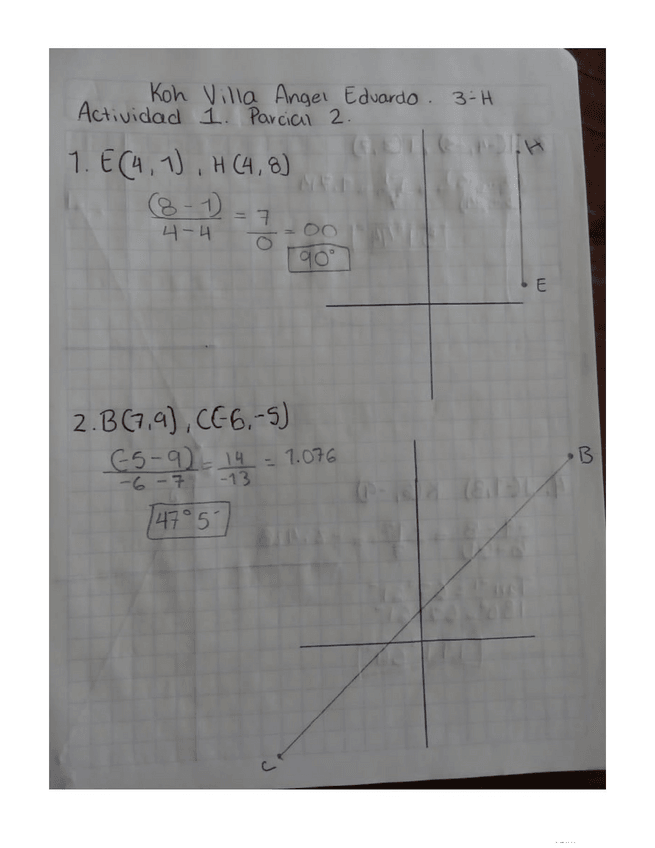 Koh Villa Angel Eduardo. 3-H
Actividad 1. Parcial 2.
1. E(4,1), H(4,8)
(8-1)/4-4 = 7/0 = ∞
90°
H
E
2. B(7,9), C(-6,-5)
(-5-9)/-6-7 = 14/-13 = 1.076
47° 5'
B
C